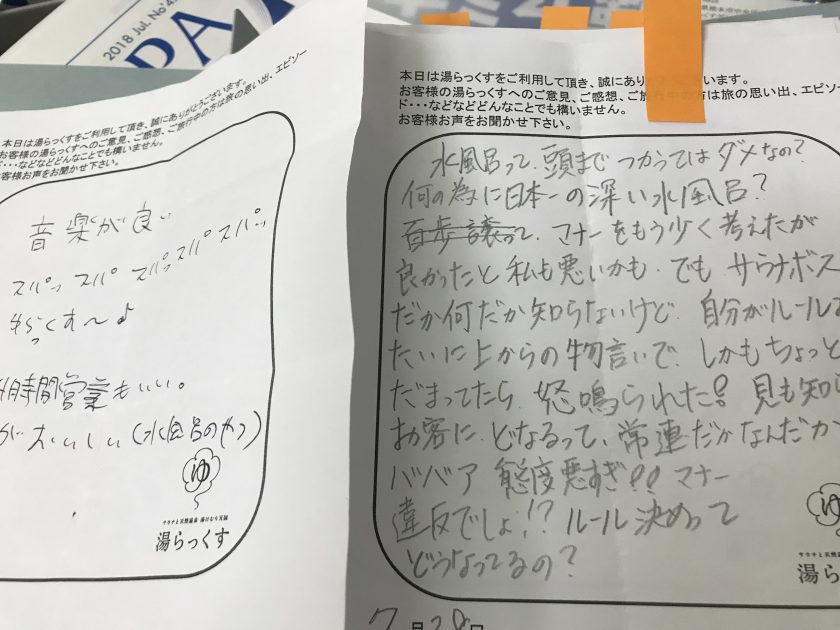 2018 Jul. No'4
PA
本日は湯らっくすをご利用して頂き、誠にありがとうございます。
お客様の湯らっくすへのご意見、ご感想、ご旅行中の方は旅の思い出、エピソー
ド・・・などなどどんなことでも構いません。
お客様お声をお聞かせ下さい。
音楽が良い
スパッ スパ スパッ スパ スパッ
らっくす〜♪
時間営業もいい。
がおいしい(水風呂のやつ)
ゆ
サウナと天然温泉 湯けむり天国
湯らっくす
本日は湯らっくすをご利用して頂き、誠にあり ございます。
お客様の湯らっくすへのご意見、ご感想、ご旅行中の方は旅の思い出、エピソー
ド・・・などなどどんなことでも構いません。
お客様お声をお聞かせ下さい。
水風呂って、頭までつかってはダメなの?
何の為に日本一の深い水風呂?
百歩譲って、マナーをもう少く考えたが
良かったと私も悪いかも。でもサウナボス
だか何だか知らないけど、自分がルールみ
たいに上からの物言いで、しかもちょっと
だまってたら、怒鳴られた!! 見も知ら
お客に、どなるって、常連だかなんだか
ババア 態度悪すぎ!! マナー
違反でしょ!? ルール決めって
どうなってるの?
ゆ
サウナと天然温泉
湯らっ
7月28日